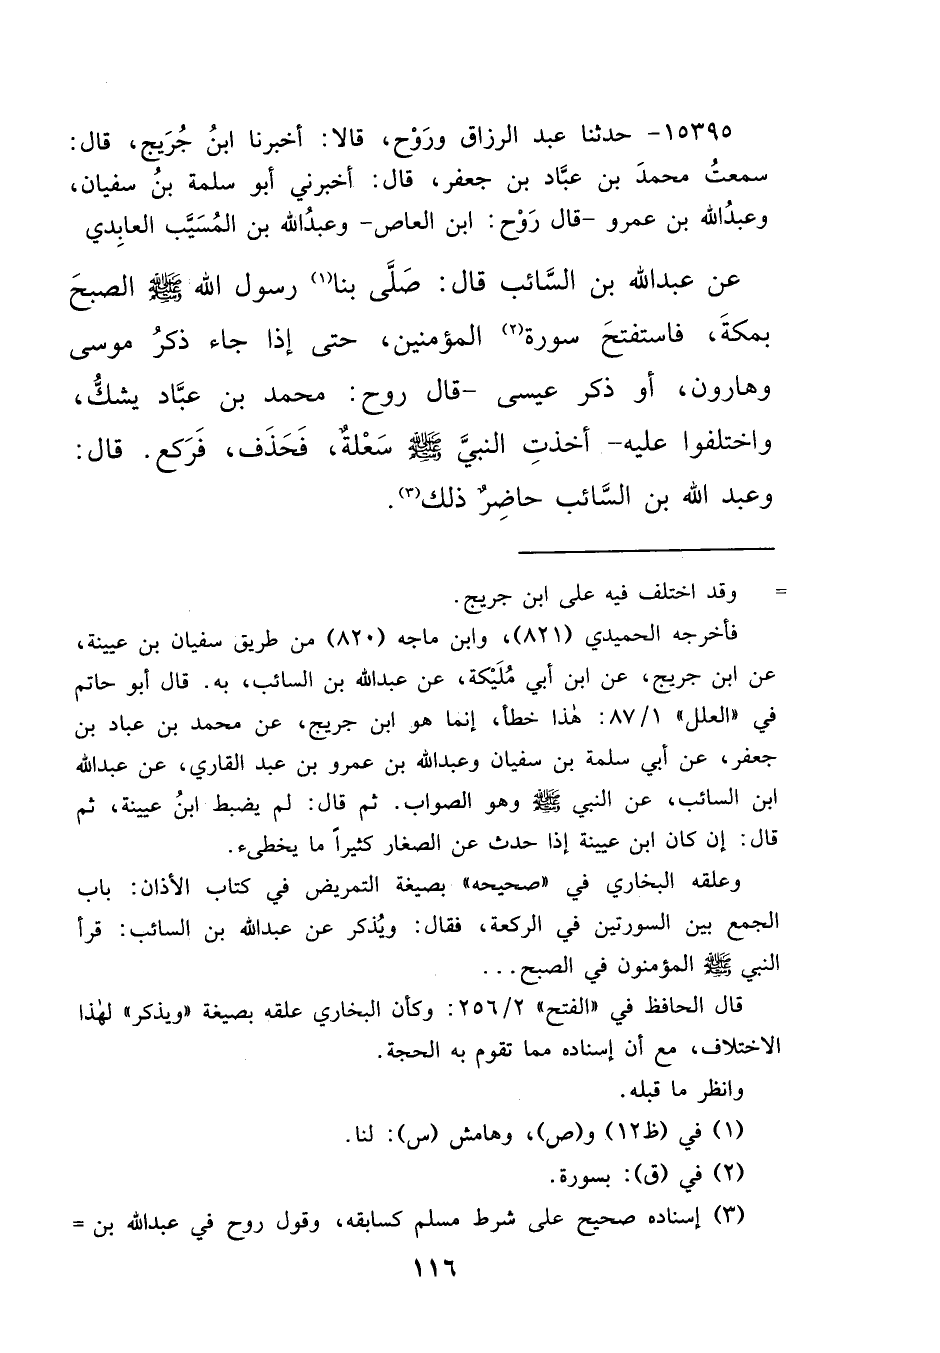 ١٥٣٩٥- حدثنا عبد الرزاق ورَوْح، قالا: أخبرنا ابنُ جُرَيج، قال:
سمعتُ محمدَ بن عبَّاد بن جعفر، قال: أخبرني أبو سلمة بنُ سفيان،
وعبدُالله بن عمرو -قال رَوْح: ابن العاص- وعبدُالله بن المُسَيَّب العابِدي
عن عبدالله بن السَّائب قال: صَلَّى بنا(١) رسول الله ﷺ الصبحَ
بمكةَ، فاستفتحَ سورة(٢) المؤمنين، حتى إذا جاء ذكرُ موسى
وهارون، أو ذكر عيسى -قال روح: محمد بن عبَّاد يشكُّ،
واختلفوا عليه- أخذتِ النبيَّ ﷺ سَعْلةٌ، فَحَذَف، فَرَكع. قال:
وعبد الله بن السَّائب حاضِرٌ ذلك(٣).
= وقد اختلف فيه على ابن جريج.
فأخرجه الحميدي (٨٢١)، وابن ماجه (٨٢٠) من طريق سفيان بن عيينة،
عن ابن جريج، عن ابن أبي مُلَيْكة، عن عبدالله بن السائب، به. قال أبو حاتم
في «العلل» ٨٧/١: هٰذا خطأ، إنما هو ابن جريج، عن محمد بن عباد بن
جعفر، عن أبي سلمة بن سفيان وعبدالله بن عمرو بن عبد القاري، عن عبدالله
ابن السائب، عن النبي ﷺ وهو الصواب. ثم قال: لم يضبط ابنُ عيينة، ثم
قال: إن كان ابن عيينة إذا حدث عن الصغار كثيراً ما يخطىء.
وعلقه البخاري في «صحيحه» بصيغة التمريض في كتاب الأذان: باب
الجمع بين السورتين في الركعة، فقال: ويُذكر عن عبدالله بن السائب: قرأ
النبي ﷺ المؤمنون في الصبح...
قال الحافظ في «الفتح» ٢٥٦/٢: وكأن البخاري علقه بصيغة «ويذكر» لهٰذا
الاختلاف، مع أن إسناده مما تقوم به الحجة.
وانظر ما قبله.
(١) في (ظ١٢) و(ص)، وهامش (س): لنا.
(٢) في (ق): بسورة.
(٣) إسناده صحيح على شرط مسلم كسابقه، وقول روح في عبدالله بن =
١١٦